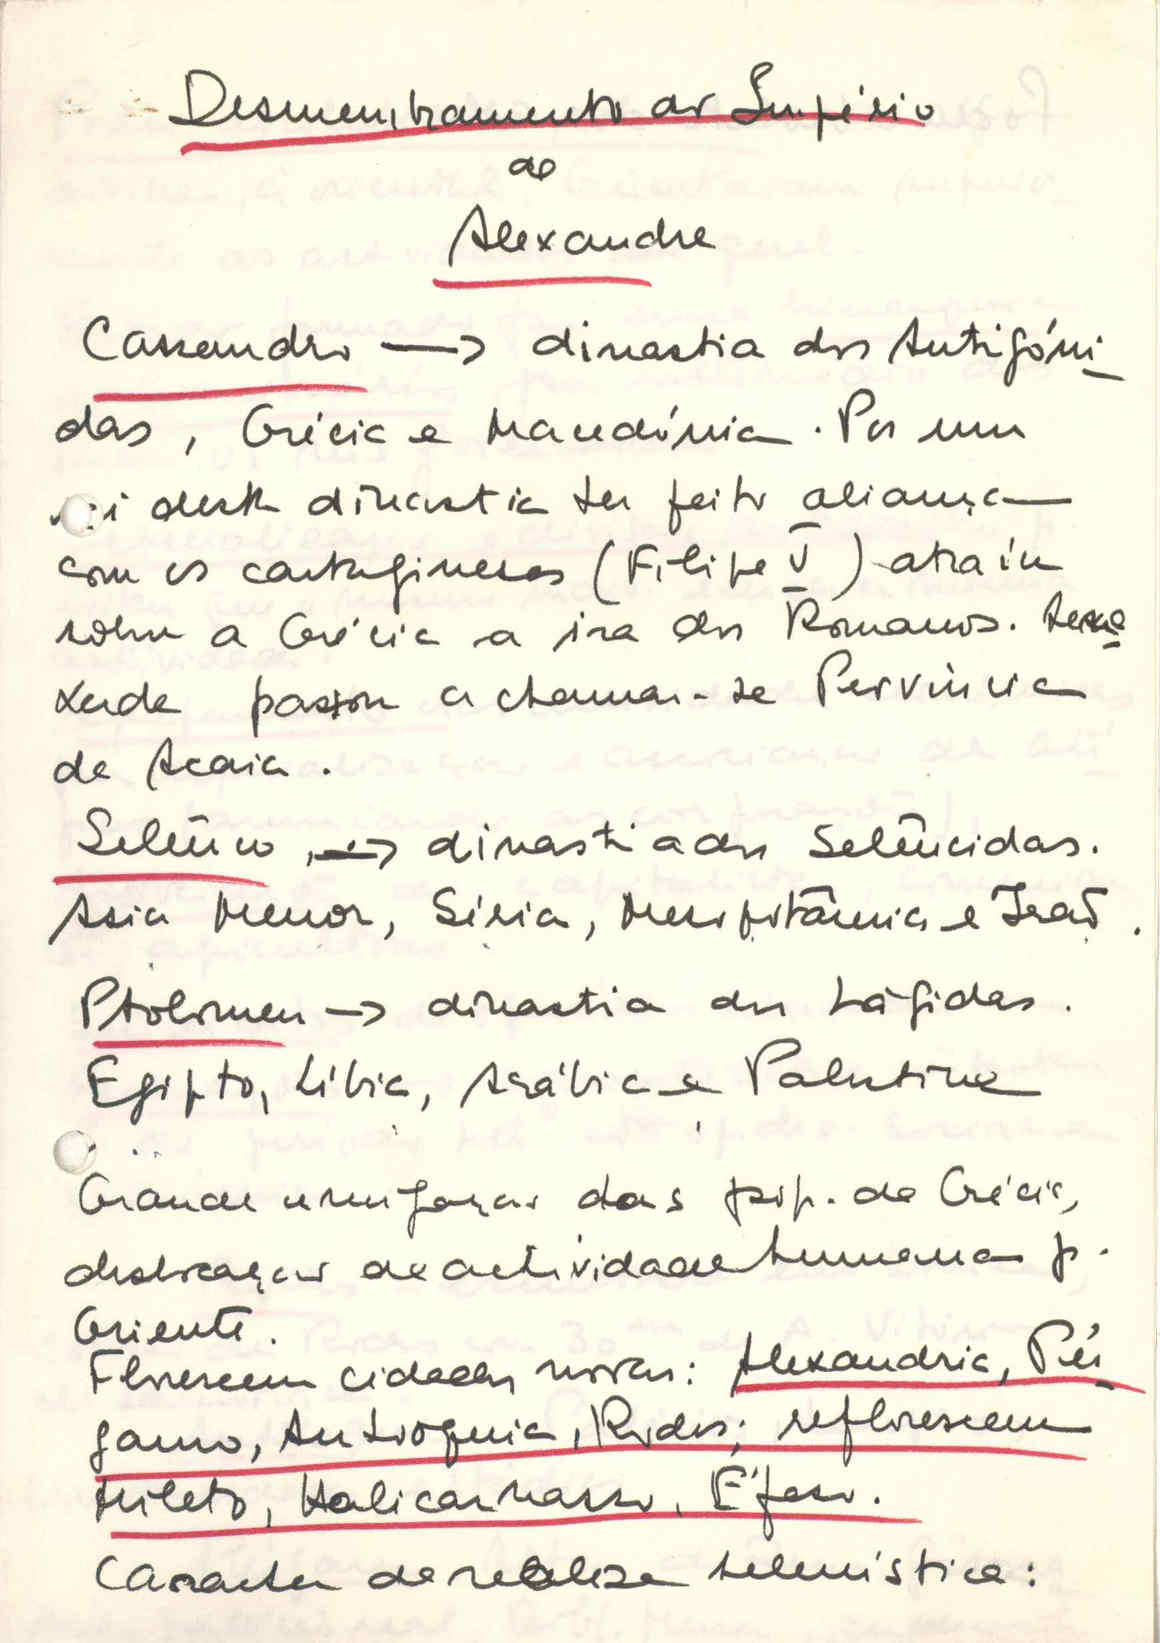 Desmembramento do Império
de
Alexandre
Cassandro → dinastia dos Antigóni-
das, Grécia e Macedónia. Por um
rei desta dinastia ter feito aliança
com os cartagineses (Filipe V) atraiu
sobre a Grécia a ira dos Romanos. Mais
tarde passou a chamar-se Província
de Acaia.
Selêuco → dinastia dos Selêucidas.
Asia Menor, Síria, Mesopotâmia e Irão.
Ptolomeu → dinastia dos Lágidas.
Egipto, Líbia, Arábia e Palestina
Grande emigração das pop. da Grécia,
deslocação da actividade humana p.
Oriente.
Florescem cidades novas: Alexandria, Pér-
gamo, Antioquia, Rodes; reflorescem
Mileto, Halicarnasso, Éfeso.
Caracter da realeza helenística: